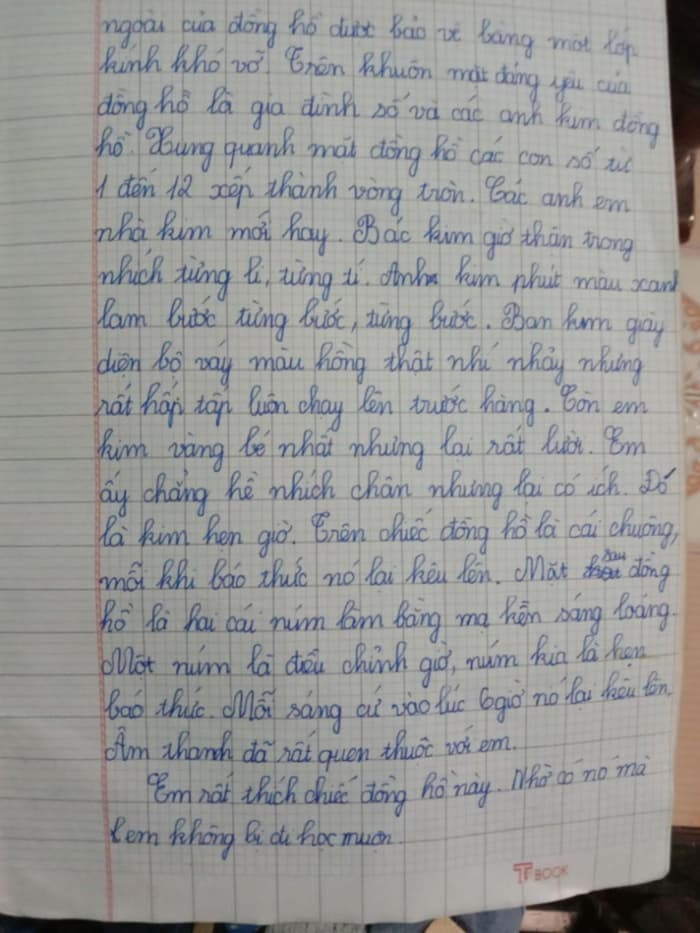 ngoài của đồng hồ được bảo vệ bằng một lớp
kính khó vỡ. Trên khuôn mặt đáng yêu của
đồng hồ là gia đình số và các anh kim đồng
hồ. Xung quanh mặt đồng hồ các con số từ
1 đến 12 xếp thành vòng tròn. Các anh em
nhà kim mới hay. Bác kim giờ thận trọng
nhích từng li, từng tí. Anh kim phút màu xanh
lam bước từng bước, từng bước. Bạn kim giây
diện bộ váy màu hồng thật nhí nhảy nhưng
rất hấp tấp luôn chạy lên trước hàng. Còn em
kim vàng bé nhất nhưng lại rất lười. Em
ấy chẳng hề nhích chân nhưng lại có ích. Đó
là kim hẹn giờ. Trên chiếc đồng hồ là cái chuông,
mỗi khi báo thức nó lại kêu lên. Mặt sau đồng
hồ là hai cái núm làm bằng mạ kền sáng loáng.
Một núm là điều chỉnh giờ, núm kia là hẹn
báo thức. Mỗi sáng cứ vào lúc 6 giờ nó lại kêu lên.
Âm thanh đã rất quen thuộc với em.
Em rất thích chiếc đồng hồ này. Nhờ có nó mà
em không bị đi học muộn.
TBOOK